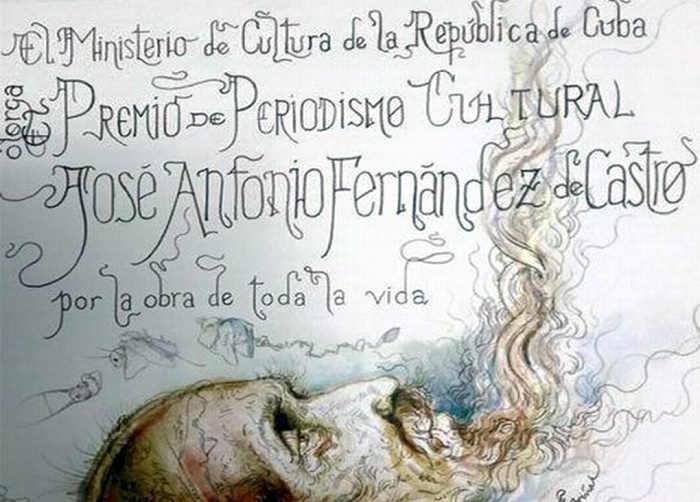 El Ministerio de Cultura de la República de Cuba
otorga
EL PREMIO DE PERIODISMO CULTURAL
José Antonio Fernández de Castro
por la obra de toda la vida